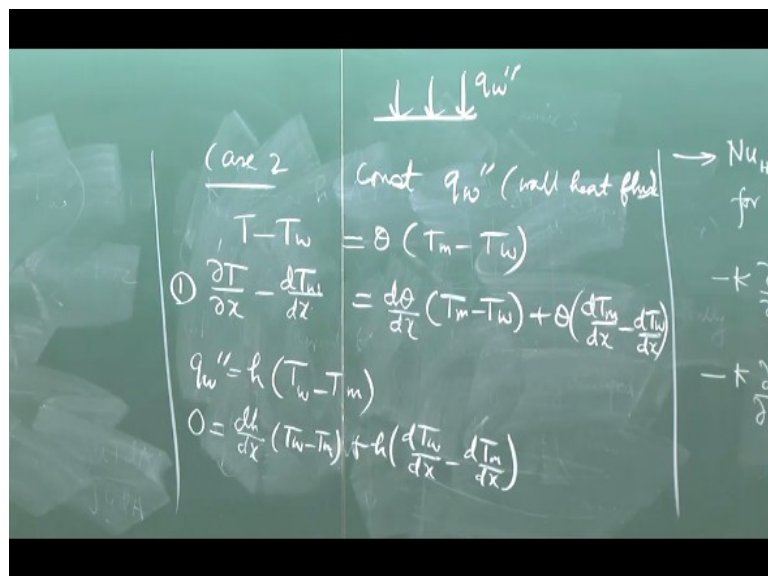 q_w''
Case 2
const q_w'' (wall heat flux)
T - T_w = θ (T_m - T_w)
① ∂T/∂x - dT_w/dx = dθ/dx (T_m - T_w) + θ(dT_m/dx - dT_w/dx)
q_w'' = h (T_w - T_m)
0 = dh/dx (T_w - T_m) + h(dT_w/dx - dT_m/dx)
→ Nu_H
for
- k ∂
- k ∂